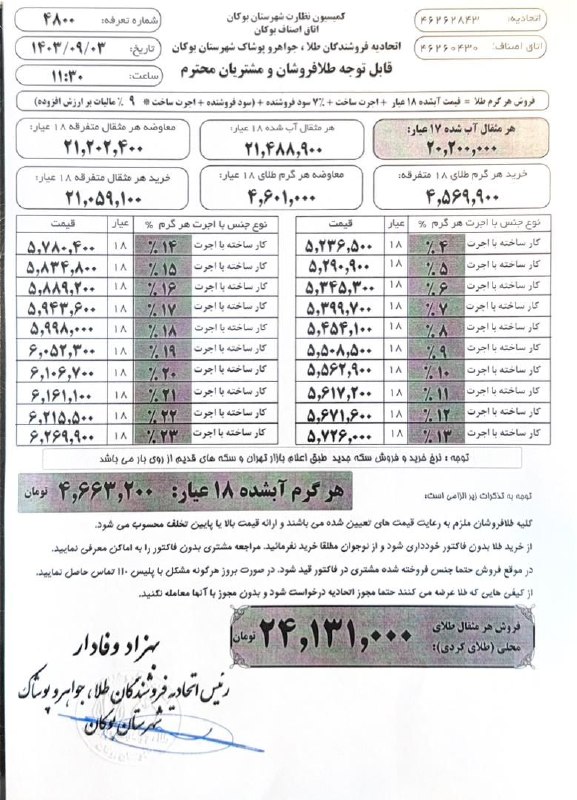 اتحادیه: ۴۶۲۶۲۸۴۳
اتاق اصناف: ۴۶۲۶۰۴۳۰
کمیسیون نظارت شهرستان بوکان
اتاق اصناف بوکان
اتحادیه فروشندگان طلا، جواهر و پوشاک شهرستان بوکان
قابل توجه طلافروشان و مشتریان محترم
شماره تعرفه: ۴۸۰۰
تاریخ: ۱۴۰۳/۰۹/۰۳
ساعت: ۱۱:۳۰
فروش هر گرم طلا = قیمت آبشده ۱۸ عیار + اجرت ساخت + ۷٪ سود فروشنده + (سود فروشنده + اجرت ساخت * ۹ ٪ مالیات بر ارزش افزوده)
هر مثقال آب شده ۱۷ عیار: ۲۰,۲۰۰,۰۰۰
هر مثقال آب شده ۱۸ عیار: ۲۱,۴۸۸,۹۰۰
معاوضه هر مثقال متفرقه ۱۸ عیار: ۲۱,۲۰۲,۴۰۰
خرید هر گرم طلای ۱۸ متفرقه: ۴,۵۶۹,۹۰۰
معاوضه هر گرم طلای ۱۸ عیار: ۴,۶۰۱,۰۰۰
خرید هر مثقال متفرقه ۱۸ عیار: ۲۱,۰۵۹,۱۰۰
نوع جنس با اجرت هر گرم % عیار قیمت
کار ساخته با اجرت ۴٪ ۱۸ ۵,۲۳۶,۵۰۰
کار ساخته با اجرت ۵٪ ۱۸ ۵,۲۹۰,۹۰۰
کار ساخته با اجرت ۶٪ ۱۸ ۵,۳۴۵,۳۰۰
کار ساخته با اجرت ۷٪ ۱۸ ۵,۳۹۹,۷۰۰
کار ساخته با اجرت ۸٪ ۱۸ ۵,۴۵۴,۱۰۰
کار ساخته با اجرت ۹٪ ۱۸ ۵,۵۰۸,۵۰۰
کار ساخته با اجرت ۱۰٪ ۱۸ ۵,۵۶۲,۹۰۰
کار ساخته با اجرت ۱۱٪ ۱۸ ۵,۶۱۷,۲۰۰
کار ساخته با اجرت ۱۲٪ ۱۸ ۵,۶۷۱,۶۰۰
کار ساخته با اجرت ۱۳٪ ۱۸ ۵,۷۲۶,۰۰۰
نوع جنس با اجرت هر گرم % عیار قیمت
کار ساخته با اجرت ۱۴٪ ۱۸ ۵,۷۸۰,۴۰۰
کار ساخته با اجرت ۱۵٪ ۱۸ ۵,۸۳۴,۸۰۰
کار ساخته با اجرت ۱۶٪ ۱۸ ۵,۸۸۹,۲۰۰
کار ساخته با اجرت ۱۷٪ ۱۸ ۵,۹۴۳,۶۰۰
کار ساخته با اجرت ۱۸٪ ۱۸ ۵,۹۹۸,۰۰۰
کار ساخته با اجرت ۱۹٪ ۱۸ ۶,۰۵۲,۳۰۰
کار ساخته با اجرت ۲۰٪ ۱۸ ۶,۱۰۶,۷۰۰
کار ساخته با اجرت ۲۱٪ ۱۸ ۶,۱۶۱,۱۰۰
کار ساخته با اجرت ۲۲٪ ۱۸ ۶,۲۱۵,۵۰۰
کار ساخته با اجرت ۲۳٪ ۱۸ ۶,۲۶۹,۹۰۰
توجه : نرخ خرید و فروش سکه جدید طبق اعلام بازار تهران و سکه های قدیم از روی بار می باشد
توجه به تذکرات زیر الزامی است:
هر گرم آبشده ۱۸ عیار: ۴,۶۶۳,۲۰۰ تومان
کلیه طلافروشان ملزم به رعایت قیمت های تعیین شده می باشند و ارائه قیمت بالا یا پایین تخلف محسوب می شود.
از خرید طلا بدون فاکتور خودداری شود و از نوجوان مطلقا خرید نفرمائید. مراجعه مشتری بدون فاکتور را به اماکن معرفی نمایید.
در موقع فروش حتما جنس فروخته شده مشتری در فاکتور قید شود. در صورت بروز هرگونه مشکل با پلیس ۱۱۰ تماس حاصل نمایید.
از کیفی هایی که طلا عرضه می کنند حتما مجوز اتحادیه درخواست شود و بدون مجوز با آنها معامله نکنید.
فروش هر مثقال طلای محلی (طلای کردی): ۲۴,۱۳۱,۰۰۰ تومان
بهزاد وفادار
رئیس اتحادیه فروشندگان طلا، جواهر و پوشاک
شهرستان بوکان